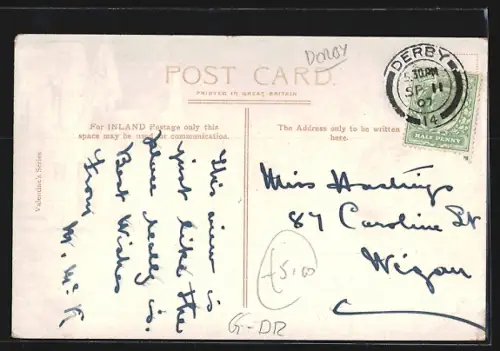 Derby
POST CARD.
PRINTED IN GREAT BRITAIN
DERBY
5.30PM
SP 11
07
14
HALFPENNY
For INLAND Postage only this
space may be used for communication.
The Address only to be written
here.
Valentine's Series
This view is
just like the
place really is.
Best Wishes
from
M. McK
Miss Hastings
87 Caroline St
Wigan
£5.00
G-DR